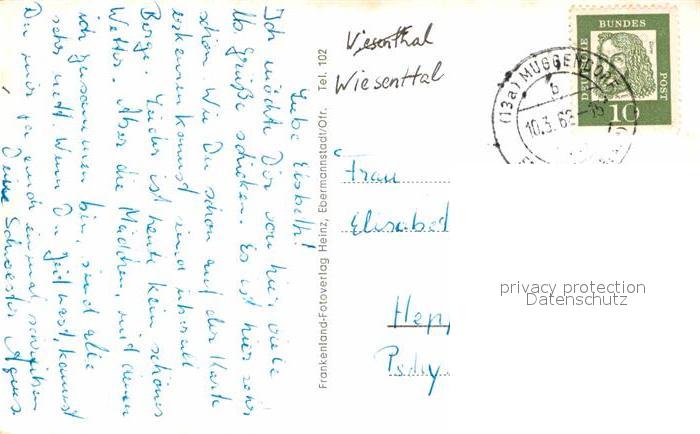 Liebe Elsbeth!
Ich möchte Dir von hier viele
lb. Grüße schicken. Es ist hier sehr
schön. Wie Du schon auf der Karte
erkennen kannst sind überall
Berge. Leider ist heute kein schönes
Wetter. Aber die Mädchen, mit denen
ich zusammen bin, sind alle
sehr nett. Wenn Du Zeit hast, kannst
Du mir ja auch einmal schreiben
Deine Schwester Agnes.
Frankenland-Fotoverlag Heinz, Ebermannstadt/Ofr. Tel. 102
Viesenthal
Wiesenttal
DEUTSCHE BUNDES POST
10
(13a) MUGGENDORF
b
10.3.63-15
Frau
Elisabet
Hep
privacy protection
Datenschutz